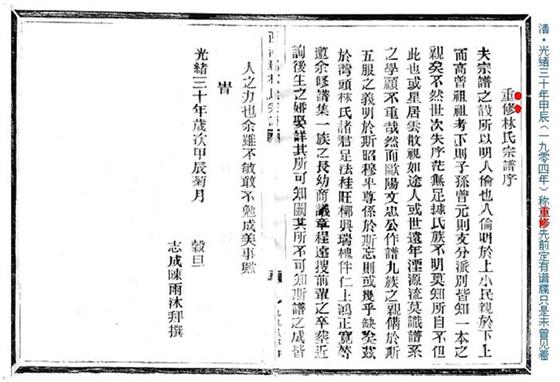 清·光绪三十年甲辰(一九零四年)称重修先前定有谱牒只是未曾见着
重修林氏宗譜序
夫宗譜之設所以明人倫也人倫明於上小民親於下上
而高曾祖祖考下則子孫曾元則支分派別皆知一本之
親矣不然世次失序茫無足據氏族不明莫知所自不但
此也或星居雲散視如途人或世遠年湮源流莫識譜系
之學顧不重哉然而歐陽文忠公作譜九族之親備於斯
五服之義明於斯昭穆平尊係於斯忘則或幾乎缺矣茲
於灣頭林氏諸君足法桂旺椰興瑞槐仁上鴻正寬等
邀余修譜集一族之長幼商議章程遠搜前輩之卒葬近
詢後生之婚娶詳其所可知闕其所不可知斯譜之成皆
林氏宗
人之力也余雖不敏敢不勉成美事歟
旹
光緒三十年歲次甲辰菊月 穀旦
志成陳雨沐拜撰